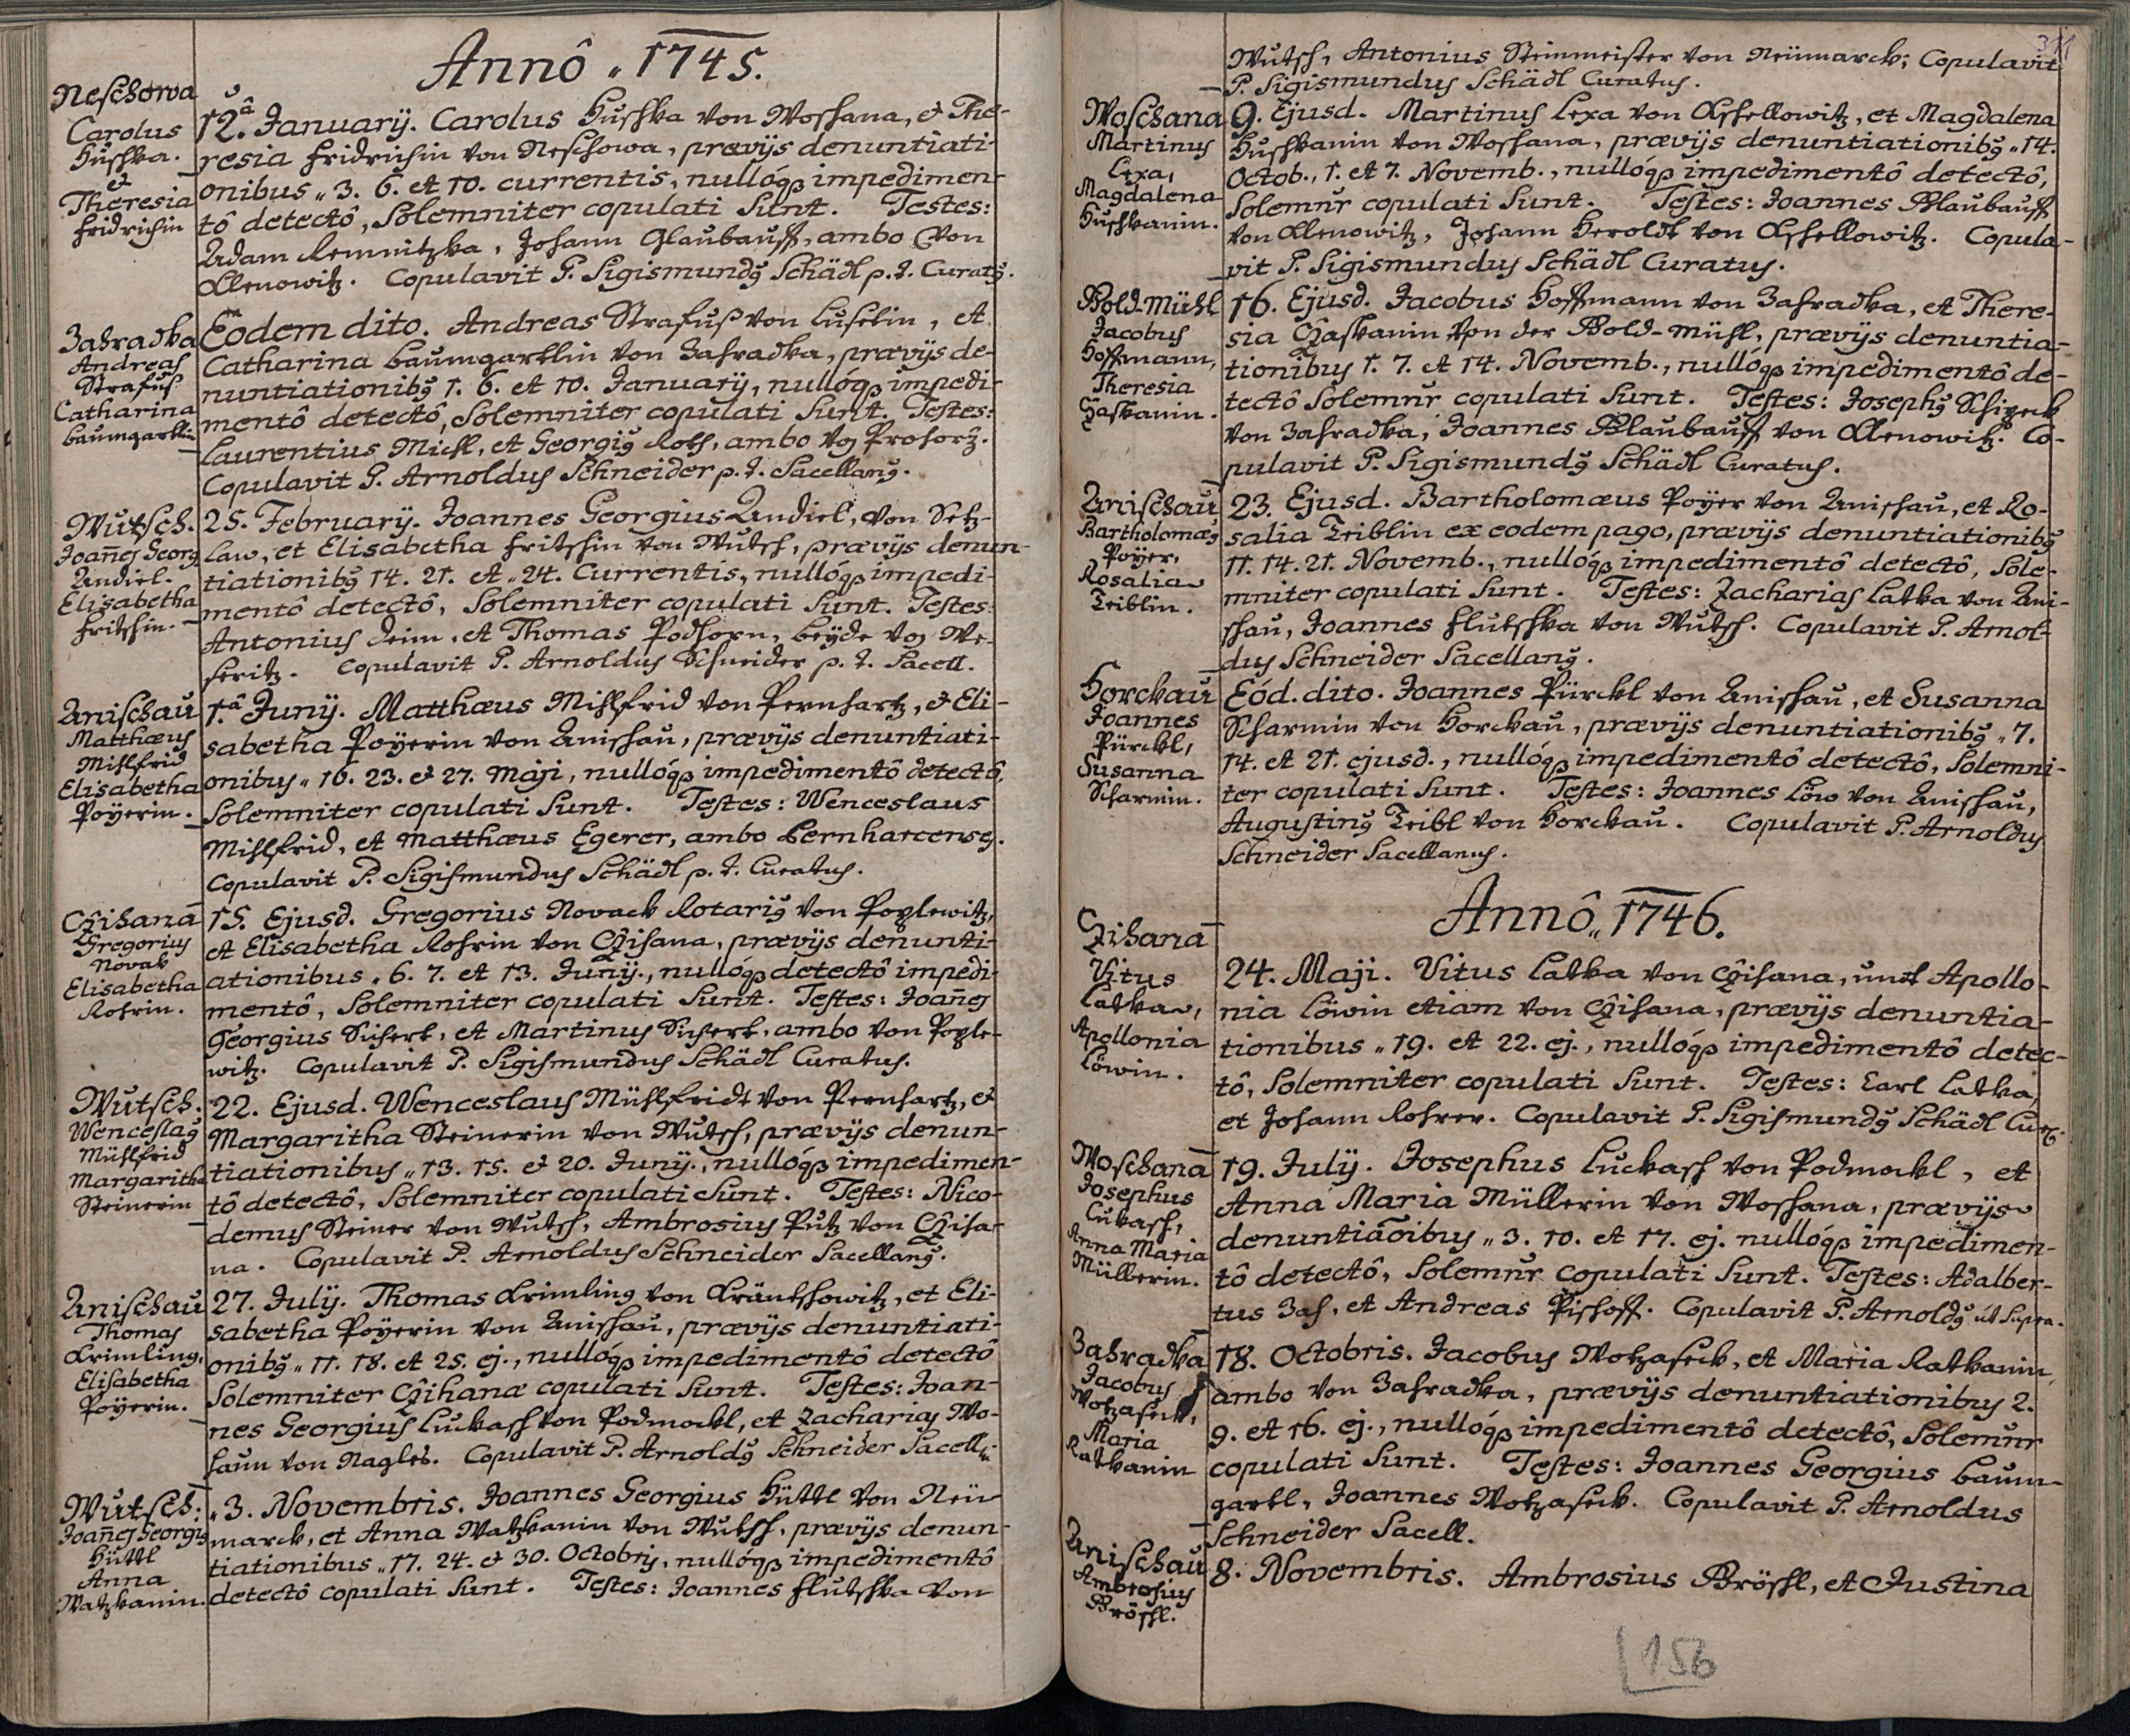 Annô „ 1745.
Neschowa
Carolus
Huschka.
et
Theresia
Fridrichin
12.â January. Carolus Huschka von Woschana, & The-
resia Fridrichin von Neschowa, prævijs denuntiati-
onibus „ 3. 6. et 10. currentis, nullóqȝ impedimen-
tô detectô, Solemniter copulati Sunt. Testes:
Adam Remnitzka, Johann Glaubauff, ambo von
Ollenowitz. Copulavit P. Sigismundꝰ Schädl p. t. Curatꝰ.
Zahradka
Andreas
Strafus
Catharina
Baumgartlin
Eodem dito. Andreas Strafuß von Luselin, et
Catharina Baumgartlin von Zahradka, prævijs de-
nuntiationibꝰ 1. 6. et 10. January, nullóqȝ impedi-
mentô detectô, Solemniter copulati Sunt. Testes:
Laurentius Michl, et Georgiꝰ Roth, ambo vȯ Prohorž.
Copulavit P. Arnoldus Schneider p. t. Sacellanꝰ.
Wutsch.
Joañes Georg
Andiel.
Elisabetha
Fritschin.
25. February. Joannes Georgius Andiel, von Setz-
law, et Elisabetha Fritschin von Wutsch, prævijs denun-
tiationibꝰ 14. 21. et „ 24. Currentis, nullóqȝ impedi-
mentô detectô, Solemniter copulati Sunt. Testes:
Antonius Deim, et Thomas Podhorn, beyde vȯ We-
seritz. Copulavit P. Arnoldus Schneider p. t. Sacell.
Anischau
Matthæus
Mihlfrid
Elisabetha
Poÿerin.
1.â Junÿ. Matthæus Mihlfrid von Pernhartz, & Eli-
sabetha Poÿerin von Anischau, prævijs denuntiati-
onibus „ 16. 23. & 27. Maji, nullóqȝ impedimentô detectô,
Solemniter copulati Sunt. Testes: Wenceslaus
Mihlfrid, et Matthæus Egerer, ambo Bernharcenses.
Copulavit P. Sigismundus Schädl p. t. Curatus.
Czihanā
Gregorius
Novak
Elisabetha
Rohrin.
15. Ejusd. Gregorius Novack Rotariꝰ von Poplowitz,
et Elisabetha Rohrin von Czihana, prævijs denunti-
ationibus „ 6. 7. et 13. Junÿ., nullóqȝ detectô impedi-
mentô, Solemniter copulati Sunt. Testes: Joañes
Georgius Sichert, et Martinus Sichert, ambo von Poplo-
witz. Copulavit P. Sigismundus Schädl Curatus.
Wutsch.
Wenceslaꝰ
Mühlfrid
Margaritha
Steinerin
22. Ejusd. Wenceslaus Mühlfridt von Pernhartz, &
Margaritha Steinerin von Wutsch, prævijs denun-
tiationibus „ 13. 15. & 20. Junÿ., nullóqȝ impedimen-
tô detectô, Solemniter copulati Sunt. Testes: Nico-
demus Steiner von Wutsch, Ambrosius Putz von Cziha-
na. Copulavit P. Arnoldus Schneider Sacellanꝰ.
Anischau
Thomas
Krimling,
Elisabetha
Poÿerin.
27. Julÿ. Thomas Krimling von Kräutschowitz, et Eli-
sabetha Poÿerin von Anischau, prævijs denuntiati-
onibꝰ „ 11. 18. et 25. ej., nullóqȝ impedimentô detectô
Solemniter Czihanæ copulati Sunt. Testes: Joan-
nes Georgius Luckasch von Podmockl, et Zacharias Wo-
haun von Nagles. Copulavit P. Arnoldꝰ Schneider Sacell.
Wutsch:
Joañes Georgiꝰ
Hüttl
Anna
Watzkanin.
„ 3. Novembris. Joannes Georgius Hüttl von Neu-
marck, et Anna Watzkanin von Wutsch, prævijs denun-
tiationibus „ 17. 24. & 30. Octobris, nullóqȝ impedimentô
detectô copulati Sunt. Testes: Joannes Flutschka von
311
Wutsch, Antonius Steinmeister von Neümarck; Copulavit
P. Sigismundus Schädl Curatus.
Woschana
Martinus
Lexa,
Magdalena
Huschkanin.
9. Ejusd. Martinus Lexa von Ossellowitz, et Magdalena
Huschkanin von Woschana, prævijs denuntiationibꝰ „ 14.
Octob., 1. et 7. Novemb., nullóqȝ impedimentô detectô,
Solemnr̄ copulati Sunt. Testes: Joannes Blaubauff
von Ollenowitz, Johann Heroldt von Ossellowitz. Copula-
vit P. Sigismundus Schädl Curatus.
Bold-Mühl
Jacobus
Hoffmann,
Theresia
Czaskanin.
16. Ejusd. Jacobus Hoffmann von Zahradka, et There-
sia Czaskanin von der Bold-mühl, prævijs denuntia-
tionibus 1. 7. et 14. Novemb., nullóqȝ impedimentô de-
tectô Solemnr̄ copulati Sunt. Testes: Josephꝰ Schipeck
von Zahradka, Joannes Blaubauff von Ollenowitz. Co-
pulavit P. Sigismundꝰ Schädl Curatus.
Anischau
Bartholomæꝰ
Poÿer,
Rosalia
Triblin.
23. Ejusd. Bartholomæus Poÿer von Anischau, et Ro-
salia Triblin ex eodem pago, prævijs denuntiationibꝰ
11. 14. 21. Novemb., nullóqȝ impedimentô detectô, Sole-
mniter copulati Sunt. Testes: Zacharias Latka von Ani-
schau, Joannes Flutschka von Wutsch. Copulavit P. Arnol-
dus Schneider Sacellanꝰ.
Horckau
Joannes
Pürckl,
Susanna
Scharmin.
Eód. dito. Joannes Pürckl von Anischau, et Susanna
Scharmin von Horckau, prævijs denuntiationibꝰ „ 7.
14. et 21. ejusd., nullóqȝ impedimentô detectô, Solemni-
ter copulati Sunt. Testes: Joannes Löw von Anischau,
Augustinꝰ Tribl von Horckau. Copulavit P. Arnoldus
Schneider Sacellanus.
Annô „ 1746.
Czihanā
Vitus
Latka,
Apollonia
Löwin.
24. Maji. Vitus Latka von Czihana, und Apollo-
nia Löwin etiam von Czihana, prævijs denuntia-
tionibus „ 19. et 22. ej., nullóqȝ impedimentô detec-
tô, Solemniter copulati Sunt. Testes: Carl Latka,
et Johann Rohrer. Copulavit P. Sigismundꝰ Schädl Cur.
Woschanā
Josephus
Lukasch,
Anna Maria
Müllerin.
19. Julÿ. Josephus Luckasch von Podmockl, et
Anna Maria Müllerin von Woschana, prævijs
denuntiaõibus „ 3. 10. et 17. ej. nullóqȝ impedimen-
tô detectô, Solemnr̄ copulati Sunt. Testes: Adalber-
tus Zah, et Andreas Pishoff. Copulavit P. Arnoldꝰ út Supra.
Zahradka
Jacobus
Wotzaseck,
Maria
Ratkanin
18. Octobris. Jacobus Wotzaseck, et Maria Ratkanin,
ambo von Zahradka, prævijs denuntiationibus 2.
9. et 16. ej., nullóqȝ impedimentô detectô, Solemnr
copulati Sunt. Testes: Joannes Georgius Baum-
gartl, Joannes Wotzaseck. Copulavit P. Arnoldus
Schneider Sacell.
Anischau
Ambrosius
Bröschl.
8. Novembris. Ambrosius Bröschl, et Justina
156